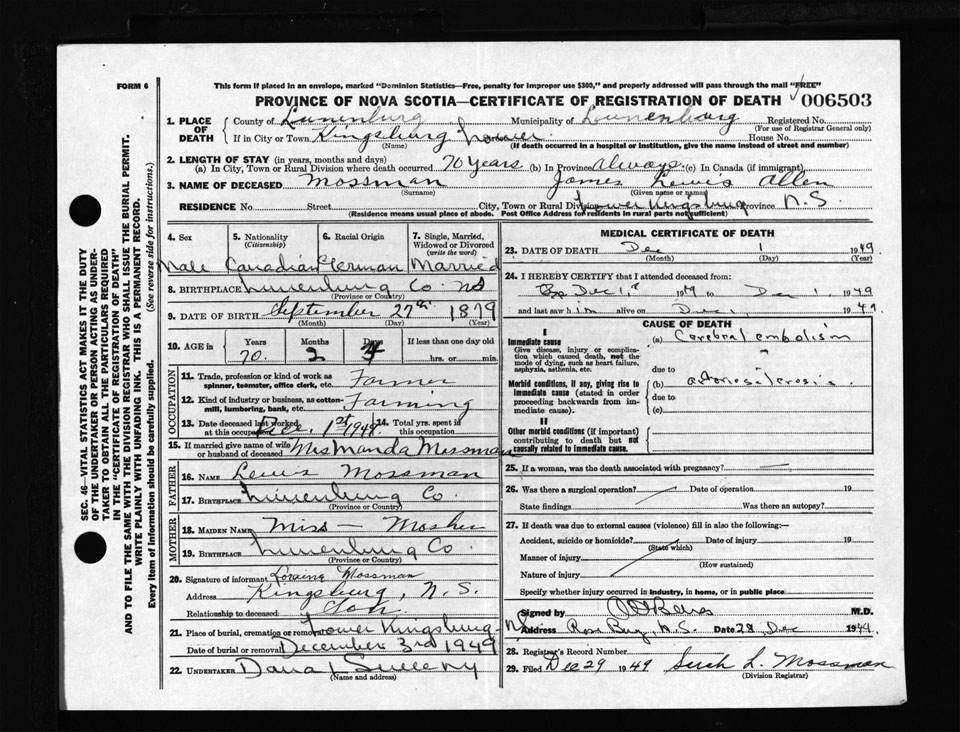 FORM 6
This form if placed in an envelope, marked "Dominion Statistics—Free, penalty for improper use $300," and properly addressed will pass through the mail "FREE"
PROVINCE OF NOVA SCOTIA—CERTIFICATE OF REGISTRATION OF DEATH 006503
1. PLACE OF DEATH
County of Lunenburg Municipality of Lunenburg Registered No.
(For use of Registrar General only)
If in City or Town Kingsburg Lower House No.
(Name) (If death occurred in a hospital or institution, give the name instead of street and number)
2. LENGTH OF STAY (in years, months and days)
(a) In City, Town or Rural Division where death occurred 70 years (b) In Province Always (c) In Canada (if immigrant)
3. NAME OF DECEASED Mossman James Lewis Allen
(Surname) (Given name or names)
RESIDENCE No. Street City, Town or Rural Division Lower Kingsburg Province N.S.
(Residence means usual place of abode. Post Office Address for residents in rural parts not sufficient)
4. Sex
5. Nationality (Citizenship)
6. Racial Origin
7. Single, Married, Widowed or Divorced (write the word)
Male Canadian German Married
8. BIRTHPLACE Lunenburg Co. NS
(Province or Country)
9. DATE OF BIRTH September 27th 1879
(Month) (Day) (Year)
10. AGE in
Years Months Days If less than one day old
70. 2 4 hrs. or min.
OCCUPATION
11. Trade, profession or kind of work as spinner, teamster, office clerk, etc. Farmer
12. Kind of industry or business, as cotton-mill, lumbering, bank, etc. Farming
13. Date deceased last worked at this occupation Dec. 1st 1949
14. Total yrs. spent in this occupation
15. If married give name of wife or husband of deceased Mrs Manda Mossman
FATHER
16. NAME Lewis Mossman
17. BIRTHPLACE Lunenburg Co.
(Province or Country)
MOTHER
18. MAIDEN NAME Miss — Mosher
19. BIRTHPLACE Lunenburg Co.
(Province or Country)
20. Signature of informant Loraine Mossman
Address Kingsburg, N.S.
Relationship to deceased Son
21. Place of burial, cremation or removal Lower Kingsburg N.S.
Date of burial or removal December 3rd 1949
22. UNDERTAKER Dana L Sweeny
(Name and address)
MEDICAL CERTIFICATE OF DEATH
23. DATE OF DEATH Dec 1 1949
(Month) (Day) (Year)
24. I HEREBY CERTIFY that I attended deceased from:
Dec 1, 1949 to Dec 1 1949
and last saw him alive on Dec 1, 1949
CAUSE OF DEATH
I
Immediate cause
Give disease, injury or complication which caused death, not the mode of dying, such as heart failure, asphyxia, asthenia, etc.
(a) Cerebral embolism
due to
Morbid conditions, if any, giving rise to immediate cause (stated in order proceeding backwards from immediate cause).
(b)
due to
(c)
II
Other morbid conditions (if important) contributing to death but not causally related to immediate cause.
25. If a woman, was the death associated with pregnancy? —
26. Was there a surgical operation? Date of operation 19
State findings Was there an autopsy?
27. If death was due to external causes (violence) fill in also the following:—
Accident, suicide or homicide? Date of injury 19
(State which)
Manner of injury
(How sustained)
Nature of injury
Specify whether injury occurred in industry, in home, or in public place
Signed by M.D.
Address Rose Bay, N.S. Date 28 Dec 1949.
28. Registrar's Record Number
29. Filed Dec 29 1949 L. Mossman
(Division Registrar)
SEC. 46—VITAL STATISTICS ACT MAKES IT THE DUTY
OF THE UNDERTAKER OR PERSON ACTING AS UNDER-
TAKER TO OBTAIN ALL THE PARTICULARS REQUIRED
IN THE "CERTIFICATE OF REGISTRATION OF DEATH"
AND TO FILE THE SAME WITH THE DIVISION REGISTRAR WHO SHALL ISSUE THE BURIAL PERMIT.
WRITE PLAINLY WITH UNFADING INK. THIS IS A PERMANENT RECORD.
Every item of information should be carefully supplied. (See reverse side for instructions.)